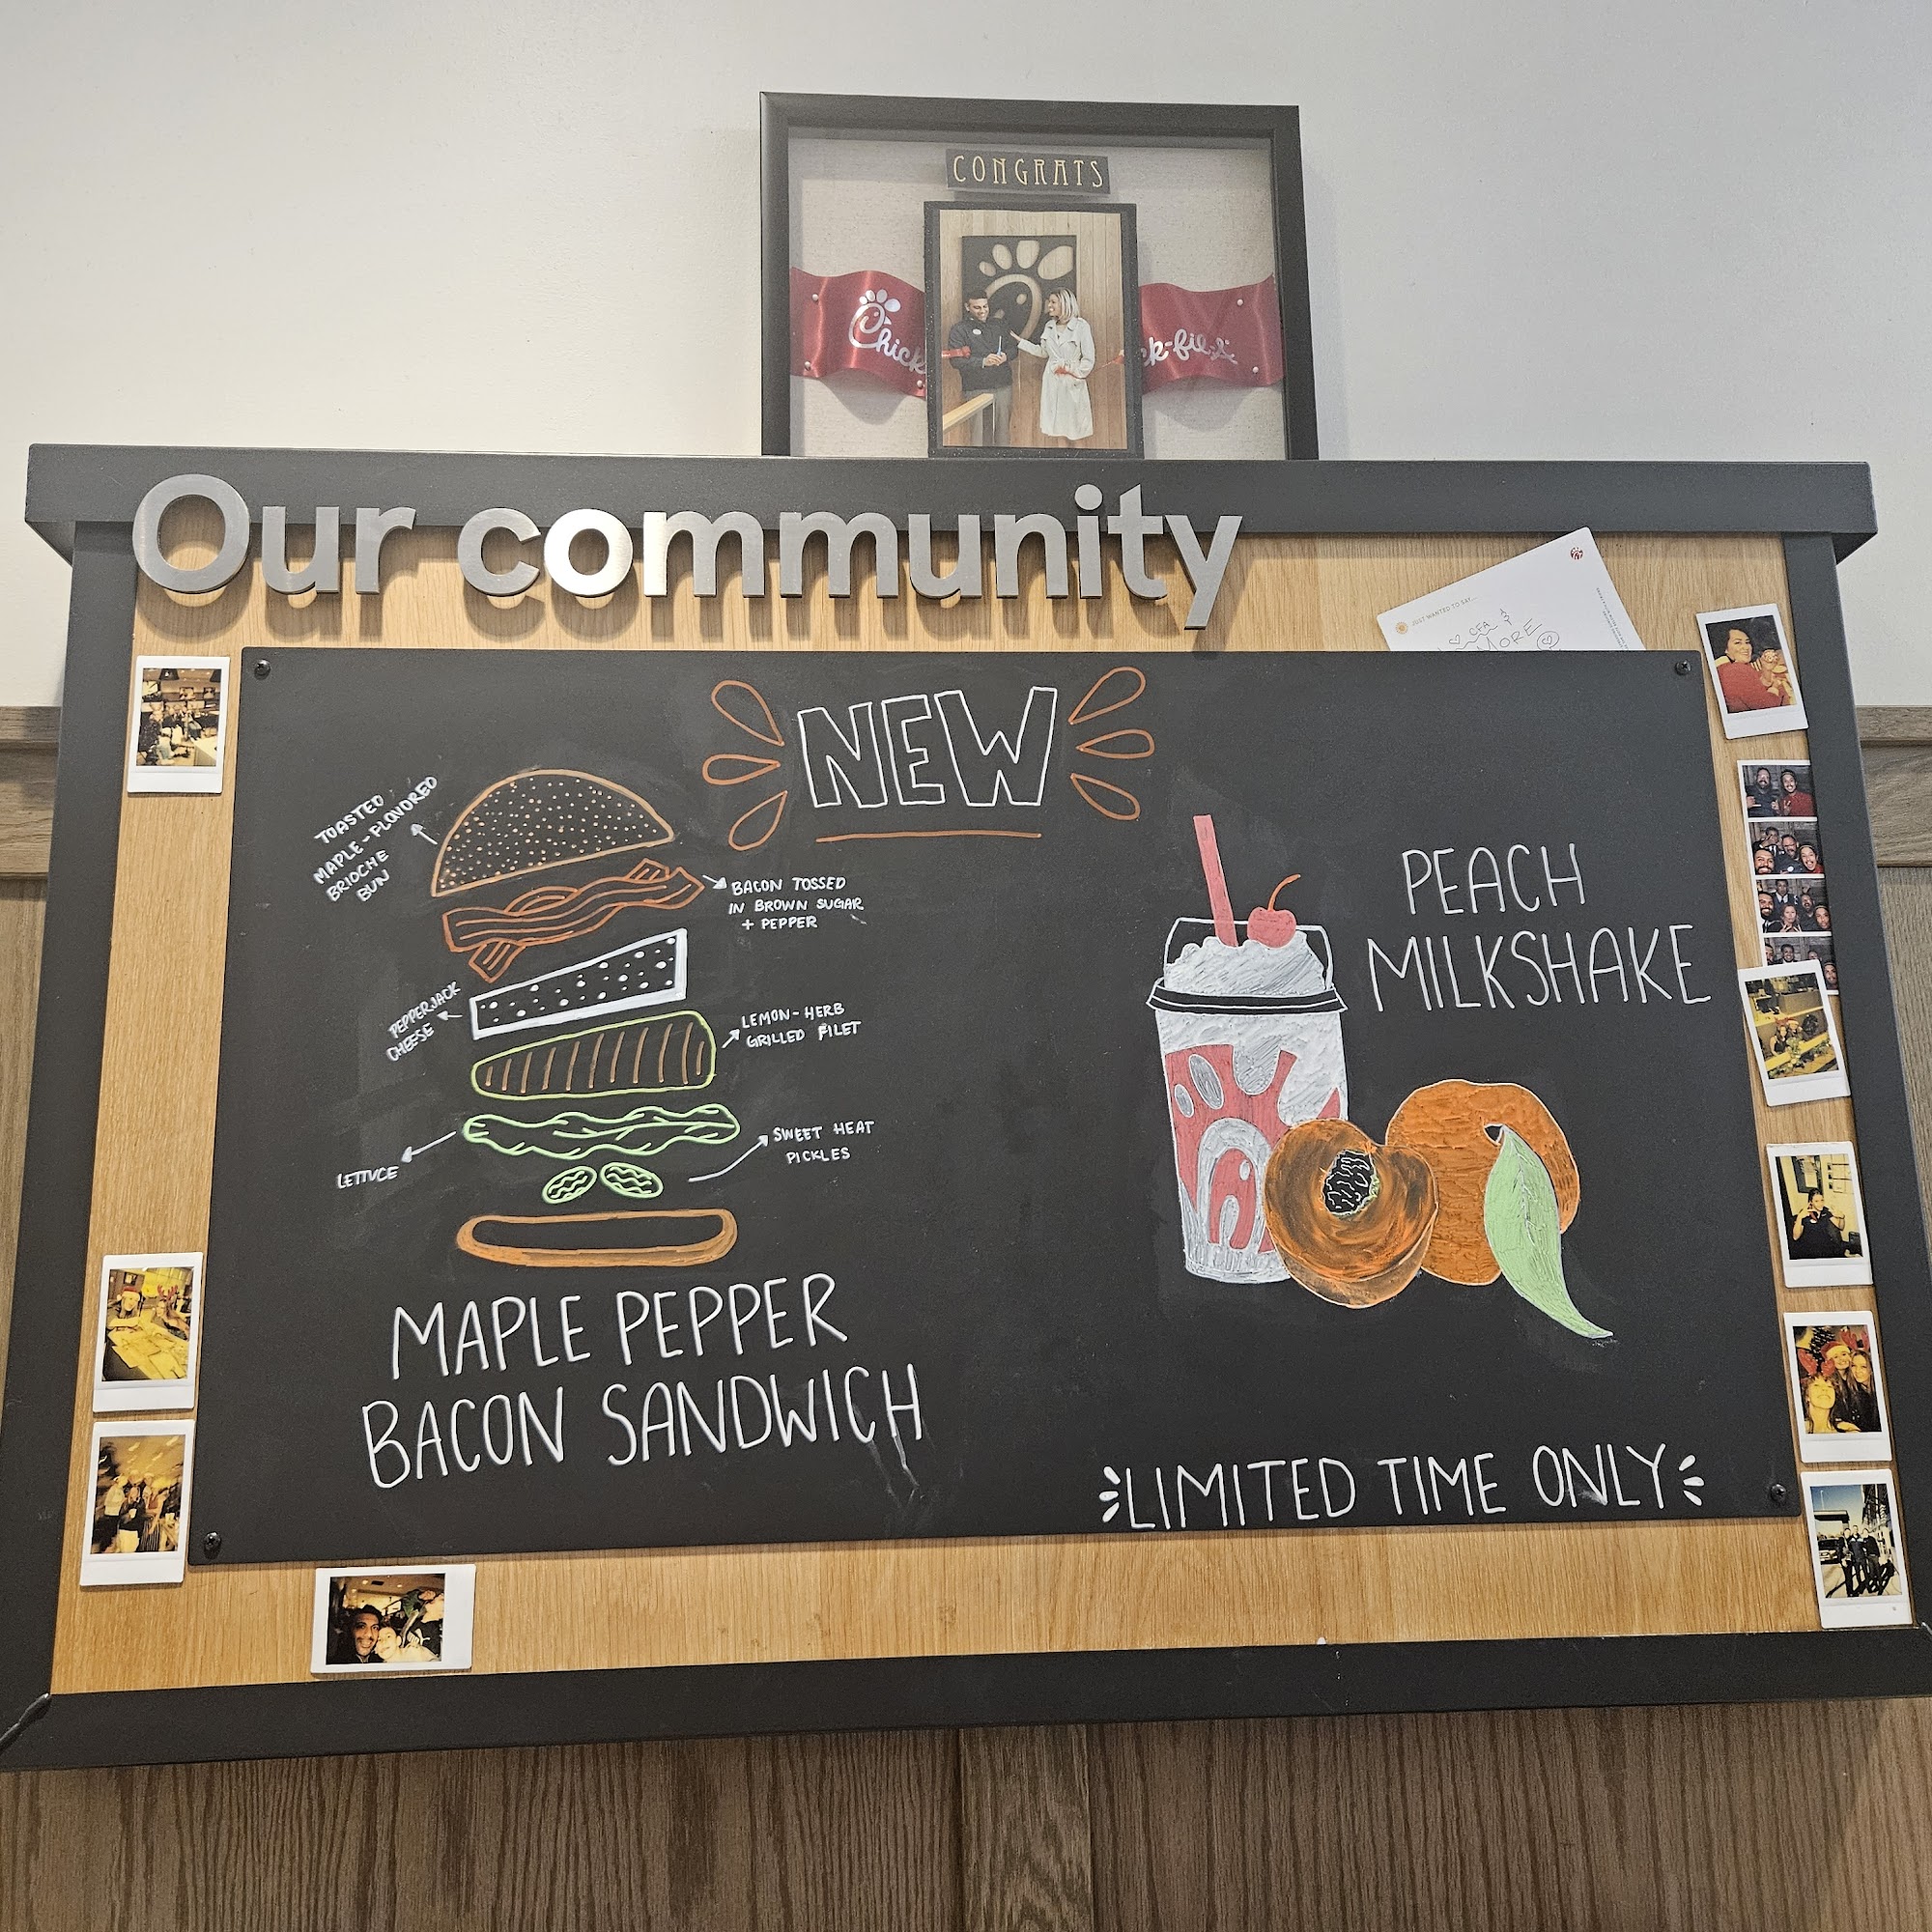 CONGRATS
Chick
ck-fil-A
Our community
JUST WANTED TO SAY...
CFA &
MORE
NEW
TOASTED
MAPLE-FLAVORED
BRIOCHE
BUN
BACON TOSSED
IN BROWN SUGAR
+ PEPPER
PEPPERJACK
CHEESE
LEMON-HERB
GRILLED FILET
LETTUCE
SWEET HEAT
PICKLES
MAPLE PEPPER
BACON SANDWICH
PEACH
MILKSHAKE
LIMITED TIME ONLY